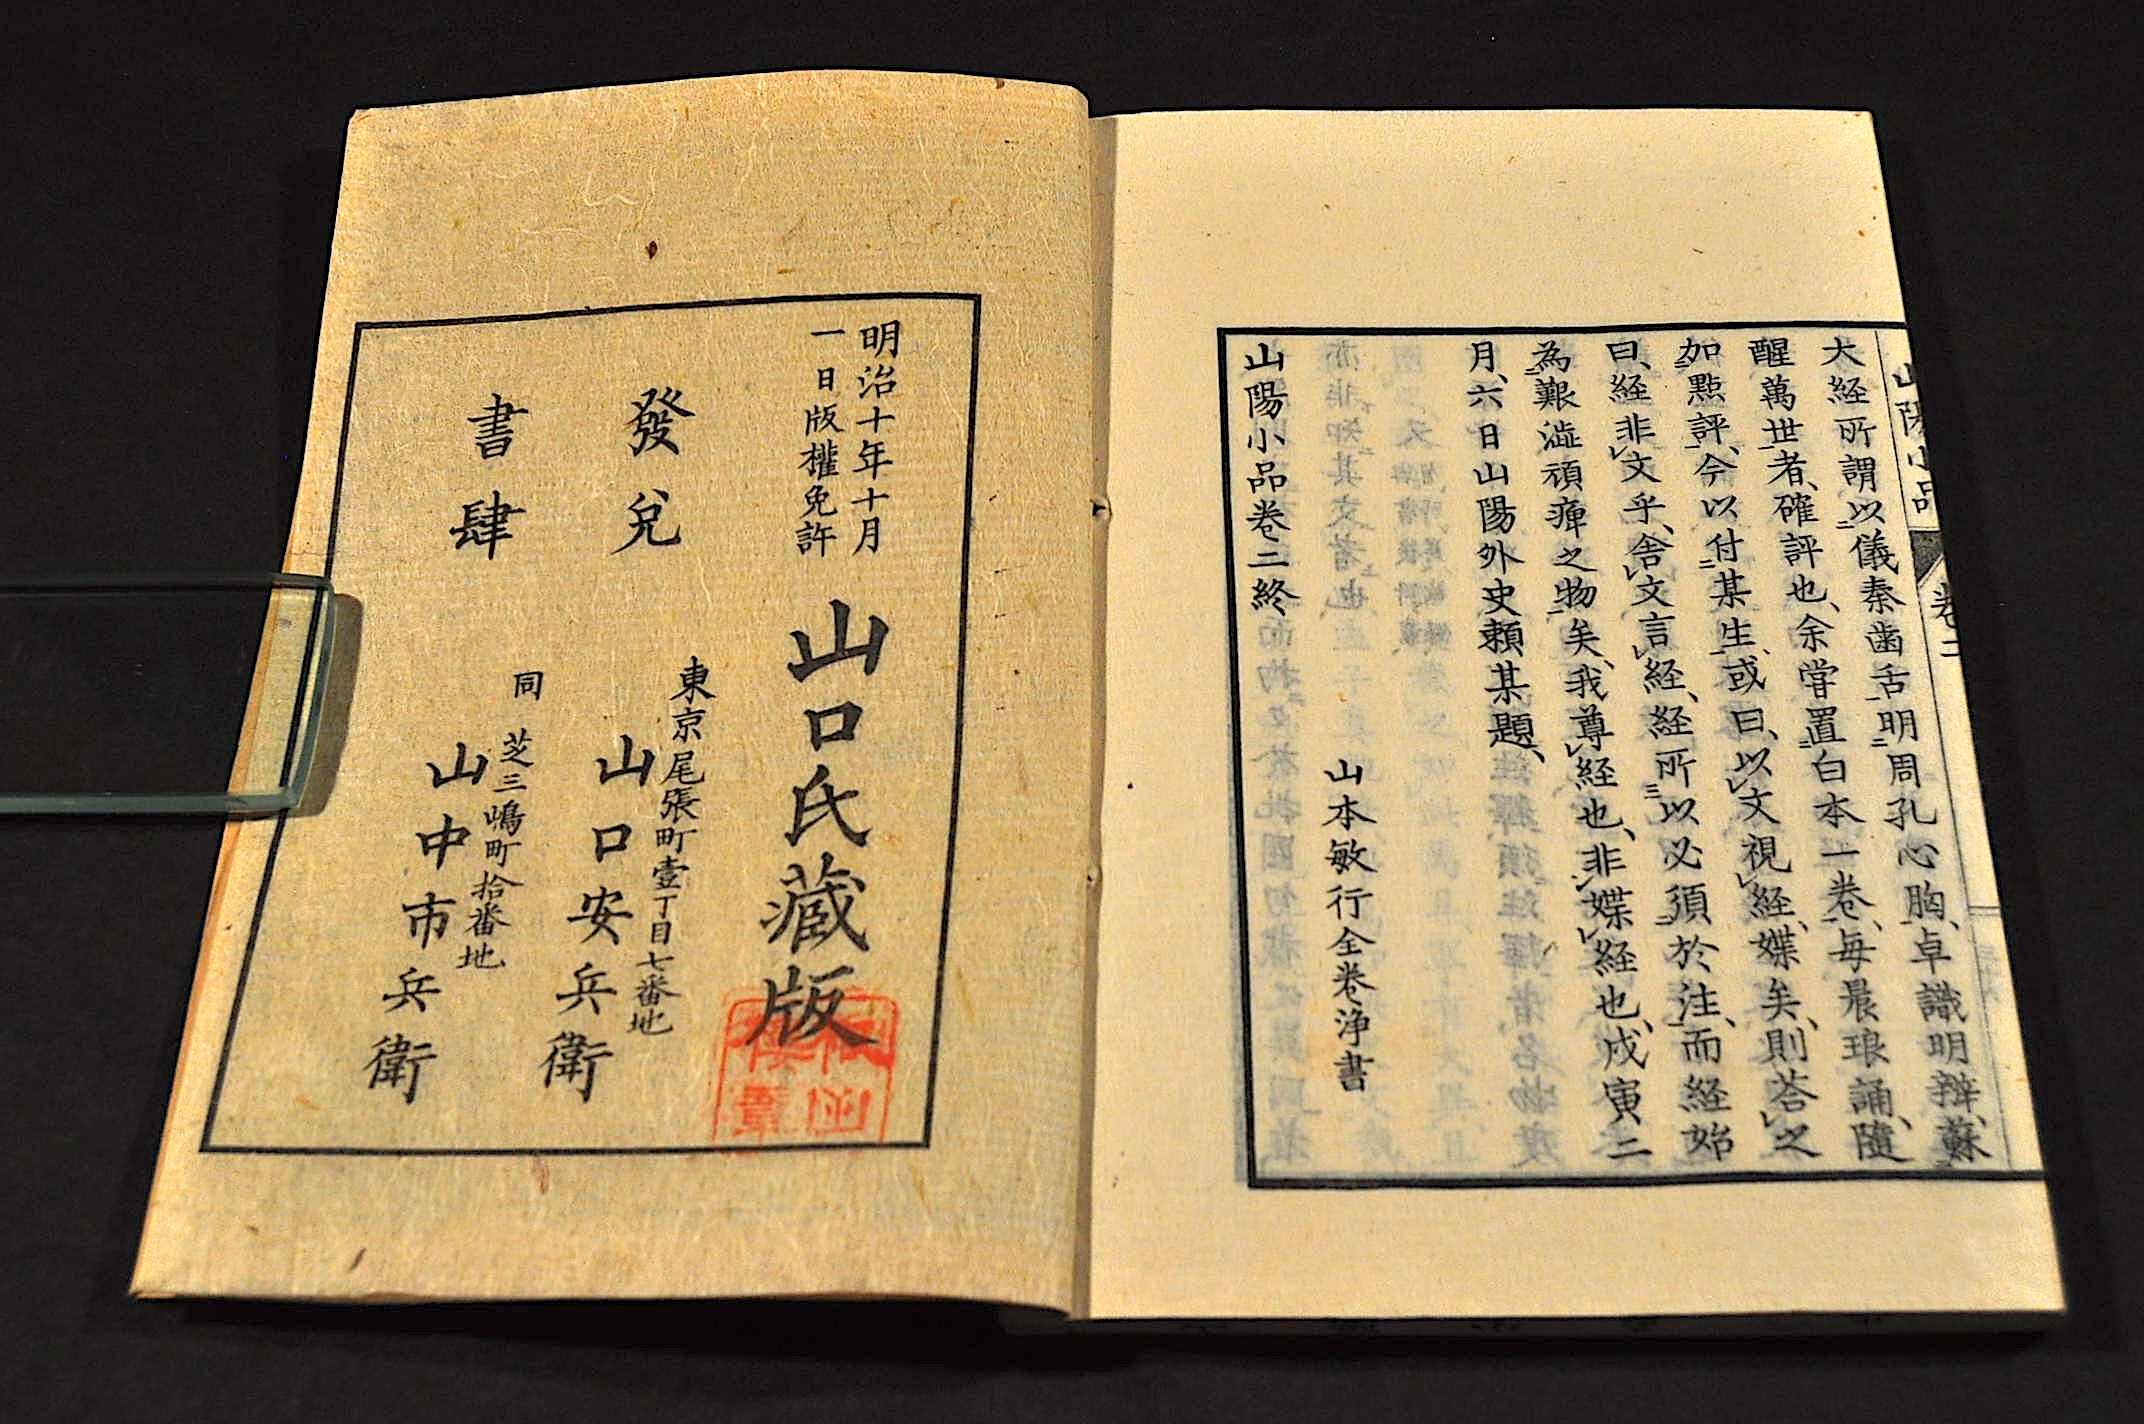 大経所謂以儀秦歯舌明周孔心胸、卓識明辨、蘇
醒萬世者、確評也、余嘗置白本一巻、毎晨琅誦、隨
加點評、今以付某生、或曰、以文視経、媟矣、則荅之
曰、経非文乎、舎文言経、経所以必須於注、而経始
為艱澁頑痺之物矣、我尊経也、非媟経也、戊寅二
月、六日山陽外史頼某題、
山本敏行全巻浄書
山陽小品巻二終
山陽小品
巻二
明治十年十月
一日版權免許
山口氏藏版
發兌
東京尾張町壹丁目七番地
山口安兵衛
書肆
同 芝三嶋町拾番地
山中市兵衛